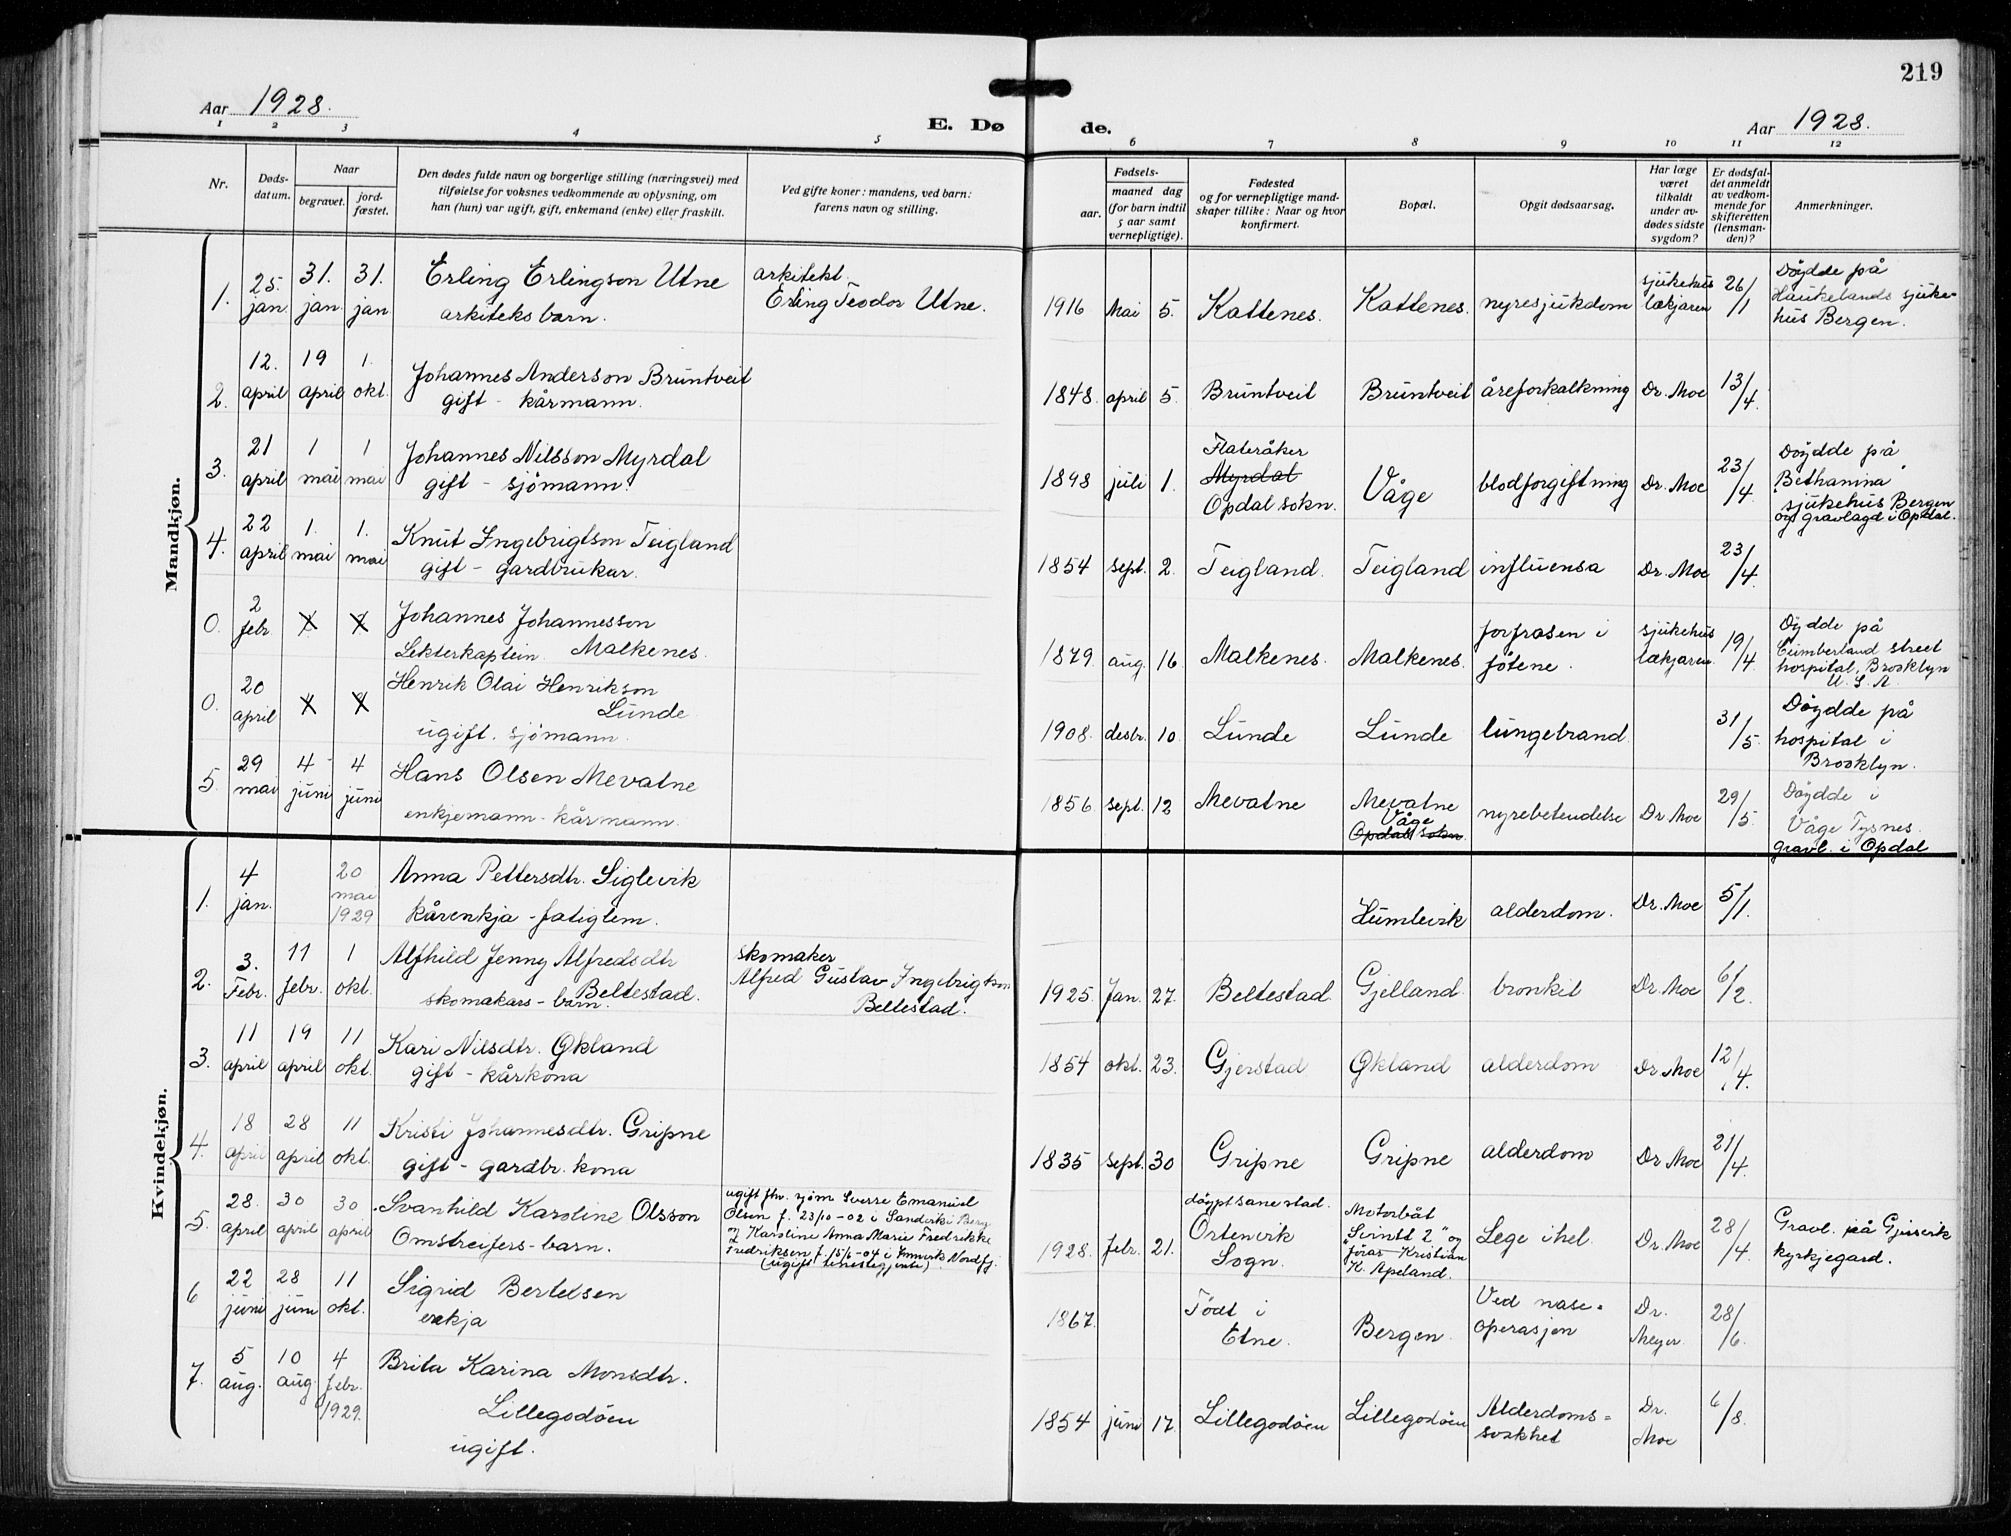 219
Aar 1928.
E. Døde.
Aar 1928.
1 2 3 4 5 6 7 8 9 10 11 12
Nr.
Døds-datum.
Naar
begravet.
jord-fæstet.
Den dødes fulde navn og borgerlige stilling (næringsvei) med
tilføielse for voksnes vedkommende av oplysning, om
han (hun) var ugift, gift, enkemand (enke) eller fraskilt.
Ved gifte koner: mandens, ved barn:
farens navn og stilling.
Fødsels-
aar.
maaned dag
(for barn indtil
5 aar samt
vernepligtige).
Fødested
og for vernepligtige mand-
skaper tillike: Naar og hvor
konfirmert.
Bopæl.
Opgit dødsaarsag.
Har læge
været
tilkaldt
under av-
dødes sidste
sygdom?
Er dødsfal-
det anmeldt
av vedkom-
mende for
skifteretten
(lensman-
den)?
Anmerkninger.
Mandkjøn.
1. 25. jan. 31. jan. 31. jan.
Erling Erlingson Utne
arkiteks barn.
arkitekt
Erling Teodor Utne.
1916 Mai 5. Kattenes. Kattenes. nyresjukdom
sjukehus
lækjaren
26/1
Döydde på
Haukelands sjuke-
hus Bergen.
2. 12. april 19 april 1. okt.
Johannes Anderson Bruntveit
gift - kårmann.
1848. april 5. Bruntveit Bruntveit åreforkalkning Dr. Moe 13/4.
3. 21 april 1 mai 1 mai
Johannes Nilsson Myrdal
gift - sjömann.
1898 juli 1.
Flateråker
Myrdal
Opdal sokn.
Våge blodforgiftning Dr. Moe 23/4.
Döydde på
"Bethanina"
sjukehus Bergen
og gravlagd i Opdal.
4. 22 april 1. mai 1. mai
Knut Ingebrigtson Teigland
gift - gardbrukar.
1854 sept. 2. Teigland. Teigland influensa Dr. Moe 23/4.
0. 2 febr.
Johannes Johannesson
Lekterkaptein Malkenes.
1879. aug. 16 Malkenes. Malkenes.
forfrosen i
fötene.
sjukehus
lækjaren
19/4.
Döydde på
Cumberland street
hospital, Brooklyn
U. S. A.
0. 20 april
Henrik Olai Henrikson
Lunde
ugift. sjömann.
1908. desbr. 10. Lunde Lunde lungebrand. 31/5.
Döydde på
hospital i
Brooklyn.
5. 29 mai 4 juni 4 juni
Hans Olsen Mevatne
enkjemann - kårmann.
1856. sept. 12 Mevatne
Mevatne
Våge
Opdal sokn.
nyrebetendelse Dr Moe 29/5.
Döydde i
Våge Tysnes.
gravl. i Opdal
Kvindekjøn.
1. 4 jan. 20 mai 1929
Anna Pettersdtr. Siglevik
kårenkja - fatiglem.
Humlevik alderdom. Dr. Moe 5/1.
2. 3. Febr. 11 febr. 1 okt.
Alfhild Jenny Alfredsdtr
skomakars - barn Beltestad.
skomaker
Alfred Gustav Ingebrigtson
Beltestad.
1925. Jan. 27. Beltestad. Gjelland. bronkit Dr. Moe 6/2.
3. 11 april 19 april 11 okt.
Kari Nilsdtr. Økland
gift - kårkona
1854 okt. 23. Gjerstad Økland alderdom Dr Moe 12/4.
4. 18 april 28 april 11 okt.
Kristi Johannesdtr. Gripne
gift - gardbr. kona
1835 sept. 30 Gripne Gripne alderdom Dr Moe 21/4.
5. 28. april 30 april 30 april
Svanhild Karoline Olsson
Omstreifers - barn.
ugift fhv. sjöm Sverre Emanuel
Olsen f. 23/10-02 i Sandviki Berg
og Karoline Anna Marie Fredrikke
Fredriksen f. 15/6-04 i Innvik Nordfj.
(ugift tenestegjente)
1928. febr. 21.
döypt sane stad.
Ortenvik
Sogn.
Motorbåt
"Svintt 2" og
förar Kristian
K. Apeland.
Lege ihel. Dr. Moe 28/4.
Gravl. på Gjersvik
kyrkjegard.
6 22 juni 28 juni 11 okt.
Sigrid Bertelsen
enkja
1867.
Födt i
Etne.
Bergen.
Ved nase-
operasjon
Dr.
Meyer
28/6.
7. 5 aug. 10 aug 4 febr. 1929.
Brita Karina Monsdtr.
Lillegodöen
ugift.
1854 juni 17. Lillegodöen Lillegodöen
Alderdoms-
svakhet
Dr.
Moe
6/8.